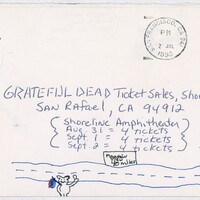 SAN FRANCISCO, CA
PM
2 JUL
GRATEFUL DEAD Ticket Sales, Sho
SAN Rafael, CA 94912
(Shoreline Amphitheater)
Aug. 31 = 4 tickets
Sept. 1 = 4 tickets
Sept. 2 = 4 tickets